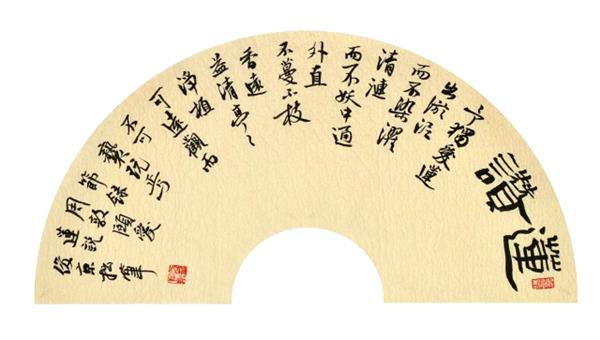 讚蓮
予獨愛蓮
出淤泥
而不染濯
清漣
而不妖中通
外直
不蔓不枝
香遠
益清亭〻
淨植
可遠觀而
不可
褻玩焉
節錄
周敦頤愛
蓮說
京松筆